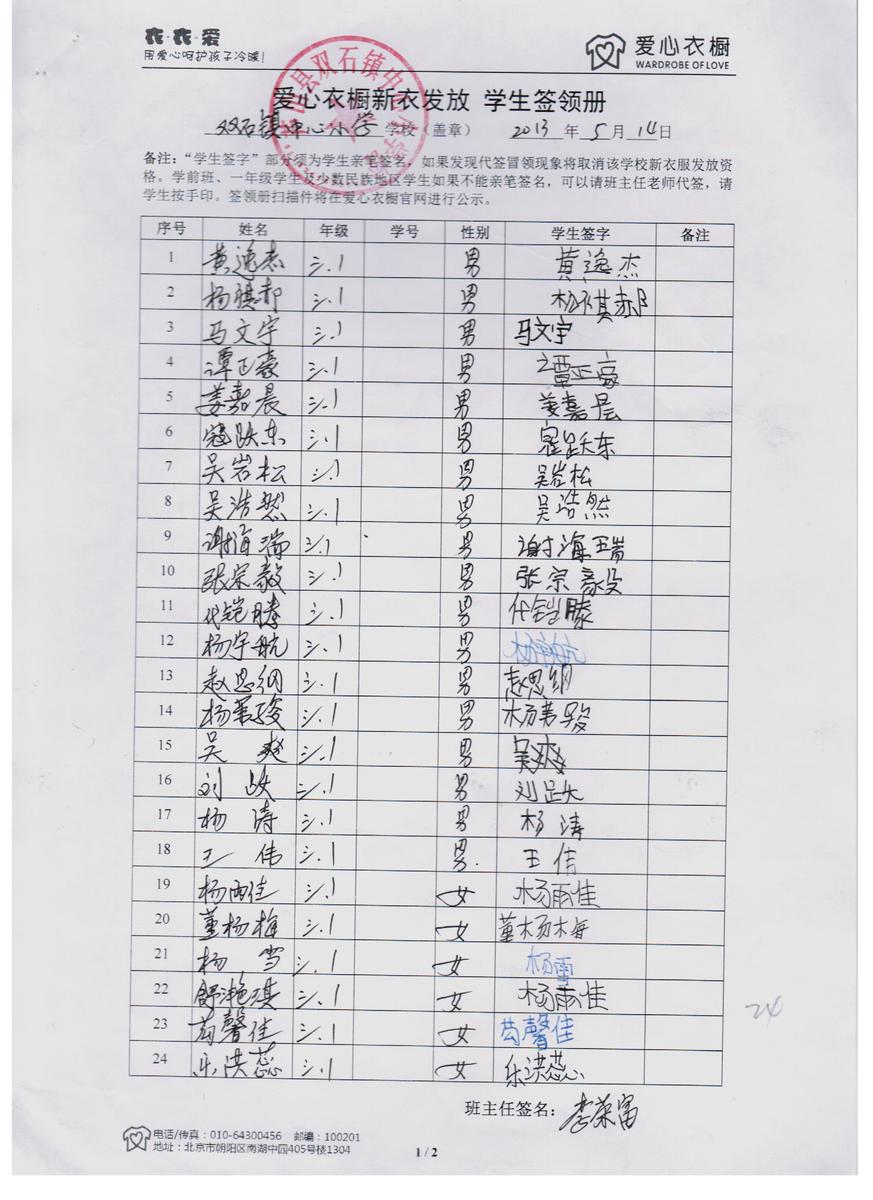 衣·衣·爱
用爱心呵护孩子冷暖!
爱心衣橱
WARDROBE OF LOVE
双石镇中心小学
爱心衣橱新衣发放 学生签领册
双石镇中心小学 学校（盖章） 2013 年 5 月 14 日
备注：“学生签字”部分须为学生亲笔签名，如果发现代签冒领现象将取消该学校新衣服发放资
格。学前班、一年级学生及少数民族地区学生如果不能亲笔签名，可以请班主任老师代签，请
学生按手印。签领册扫描件将在爱心衣橱官网进行公示。
序号 姓名 年级 学号 性别 学生签字 备注
1 黄逸杰 三.1 男 黄逸杰
2 杨祺郝 三.1 男 杨祺郝
3 马文宇 三.1 男 马文宇
4 谭正豪 三.1 男 谭正豪
5 姜嘉晨 三.1 男 姜嘉晨
6 寇跃东 三.1 男 寇跃东
7 吴岩松 三.1 男 吴岩松
8 吴浩然 三.1 男 吴浩然
9 谢海瑞 三.1 男 谢海瑞
10 张宗毅 三.1 男 张宗毅
11 代铠滕 三.1 男 代铠滕
12 杨宇航 三.1 男 杨宇航
13 赵思纲 三.1 男 赵思纲
14 杨第骏 三.1 男 杨第骏
15 吴爽 三.1 男 吴爽
16 刘跃 三.1 男 刘跃
17 杨涛 三.1 男 杨涛
18 王伟 三.1 男 王佶
19 杨雨佳 三.1 女 杨雨佳
20 董杨梅 三.1 女 董杨梅
21 杨雪 三.1 女 杨雪
22 舒滟琪 三.1 女 杨雨佳
23 苟馨佳 三.1 女 苟馨佳
24 乐洪蕊 三.1 女 乐洪蕊
24
班主任签名： 李荣富
电话/传真：010-64300456 邮编：100201
地址：北京市朝阳区南湖中园405号楼1304
1 / 2